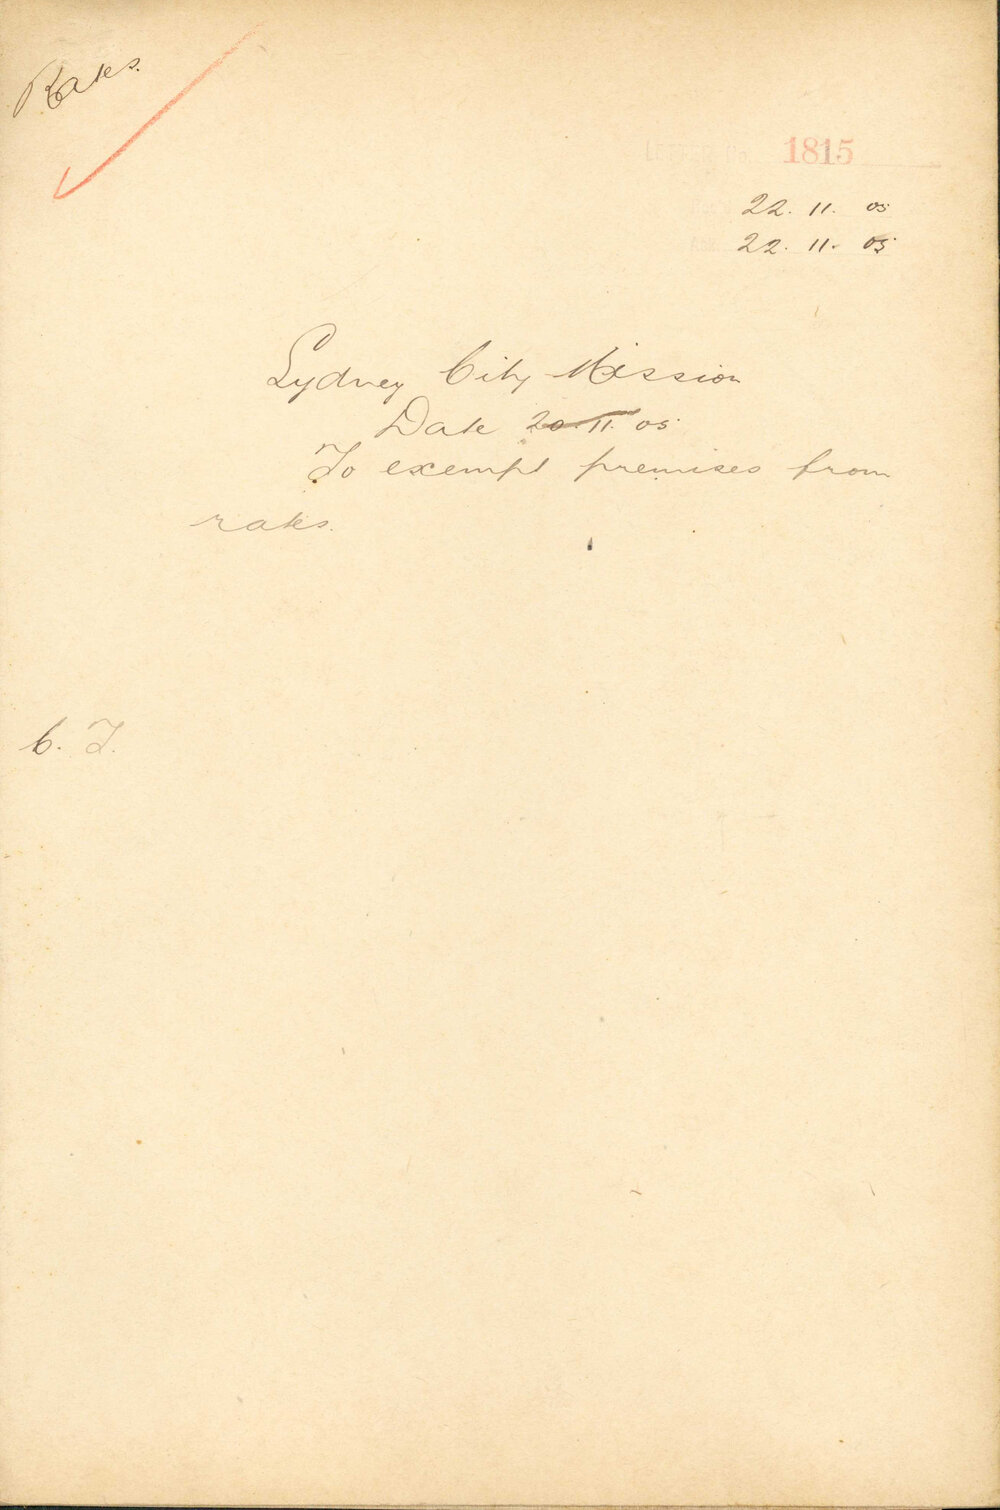 Rates.
Letter No. 1815
22. 11. 05
22. 11. 05
Sydney City Mission
Date 20.11.05
To exempt premises from
rates.
C. T.